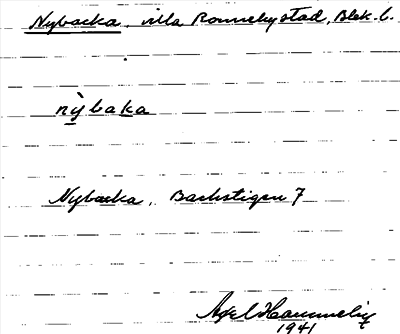 Nybacka, villa Ronneby stad, Blek. l.
nỳbaka
Nybacka, Backstigen 7
Axel Hammelig
1941